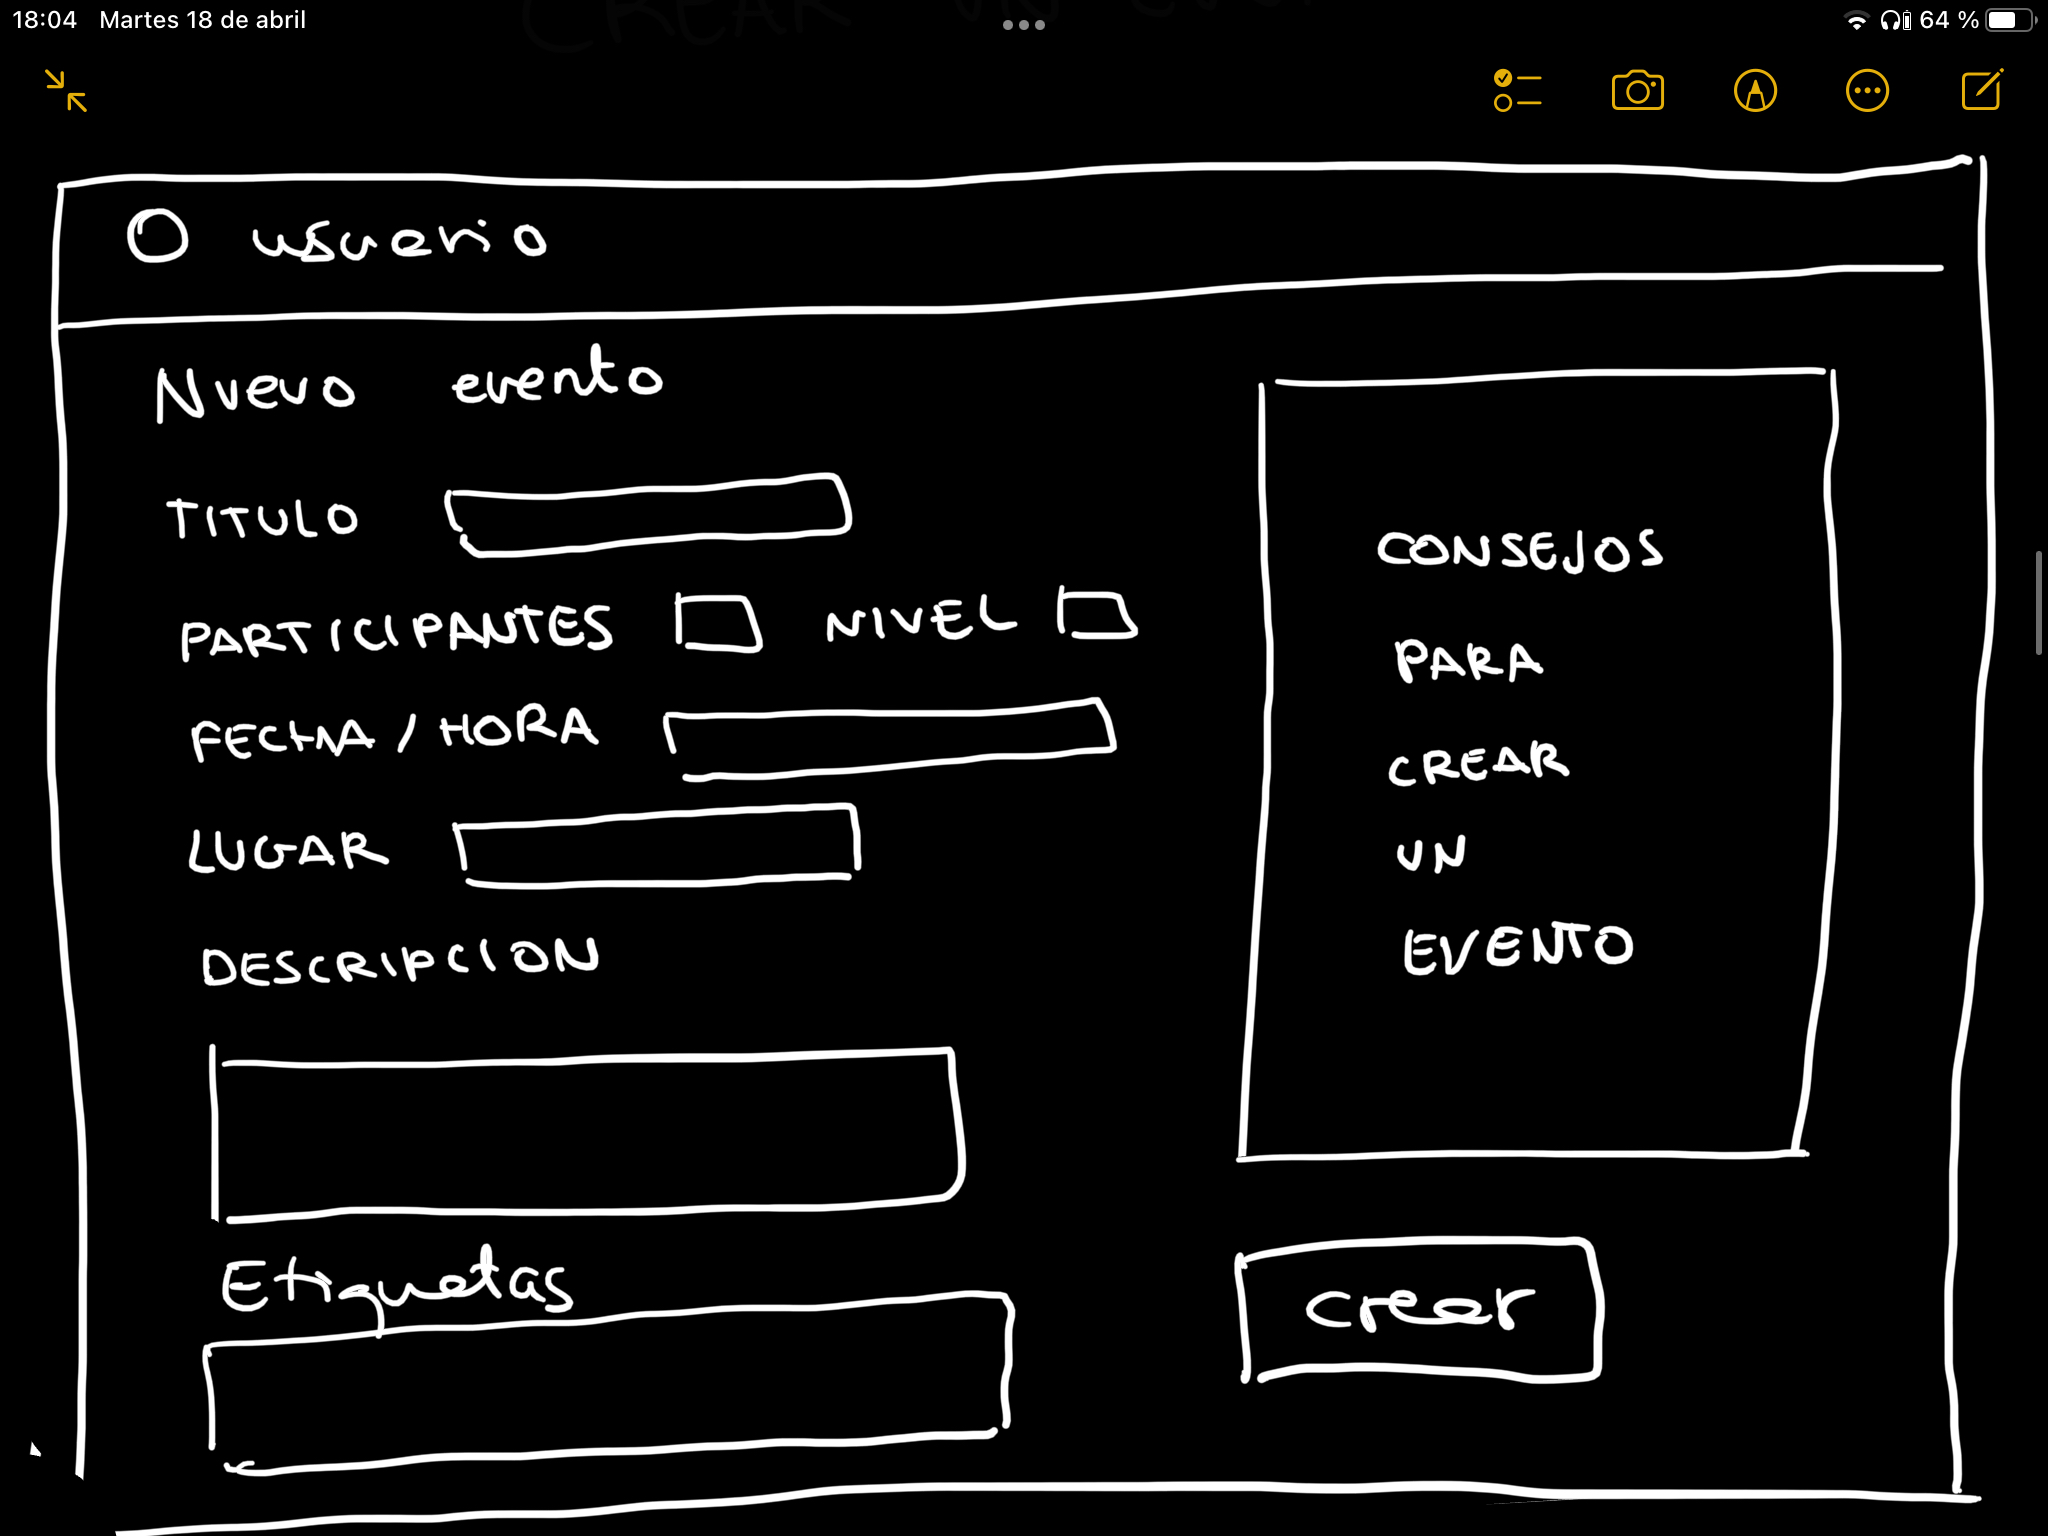 18:04 Martes 18 de abril
64 %
usuario
Nuevo evento
TITULO
PARTICIPANTES NIVEL
FECHA / HORA
LUGAR
DESCRIPCION
Etiquetas
CONSEJOS
PARA
CREAR
UN
EVENTO
crear